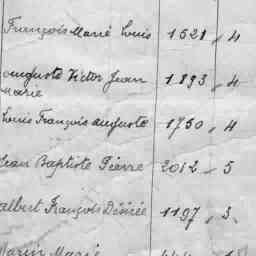 François Marie Louis 1521 „ 4
auguste Victor Jean 1.893 „ 4
Marie
Louis François auguste 1750 „ 4
Jean Baptiste Pierre 2012 „ 5
albert François Désirée 1197 „ 3
Marie